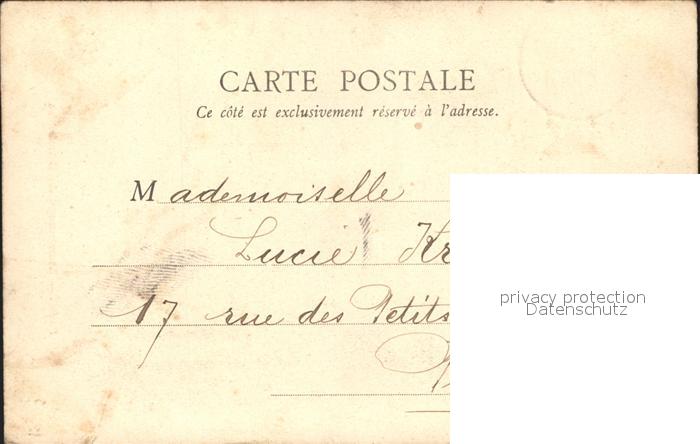 CARTE POSTALE
Ce côté est exclusivement réservé à l'adresse.
Mademoiselle
Lucie Kr
17 rue des Petits
privacy protection
Datenschutz